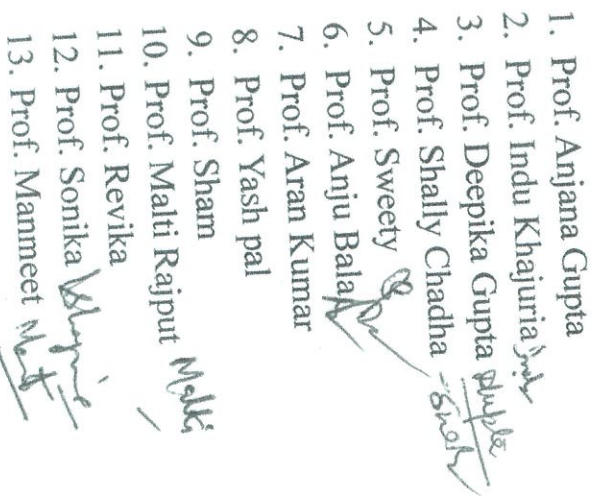 1. Prof. Anjana Gupta
2. Prof. Indu Khajuria
3. Prof. Deepika Gupta
4. Prof. Shally Chadha
5. Prof. Sweety
6. Prof. Anju Bala
7. Prof. Aran Kumar
8. Prof. Yash pal
9. Prof. Sham
10. Prof. Malti Rajput Malti
11. Prof. Revika
12. Prof. Sonika
13. Prof. Manmeet